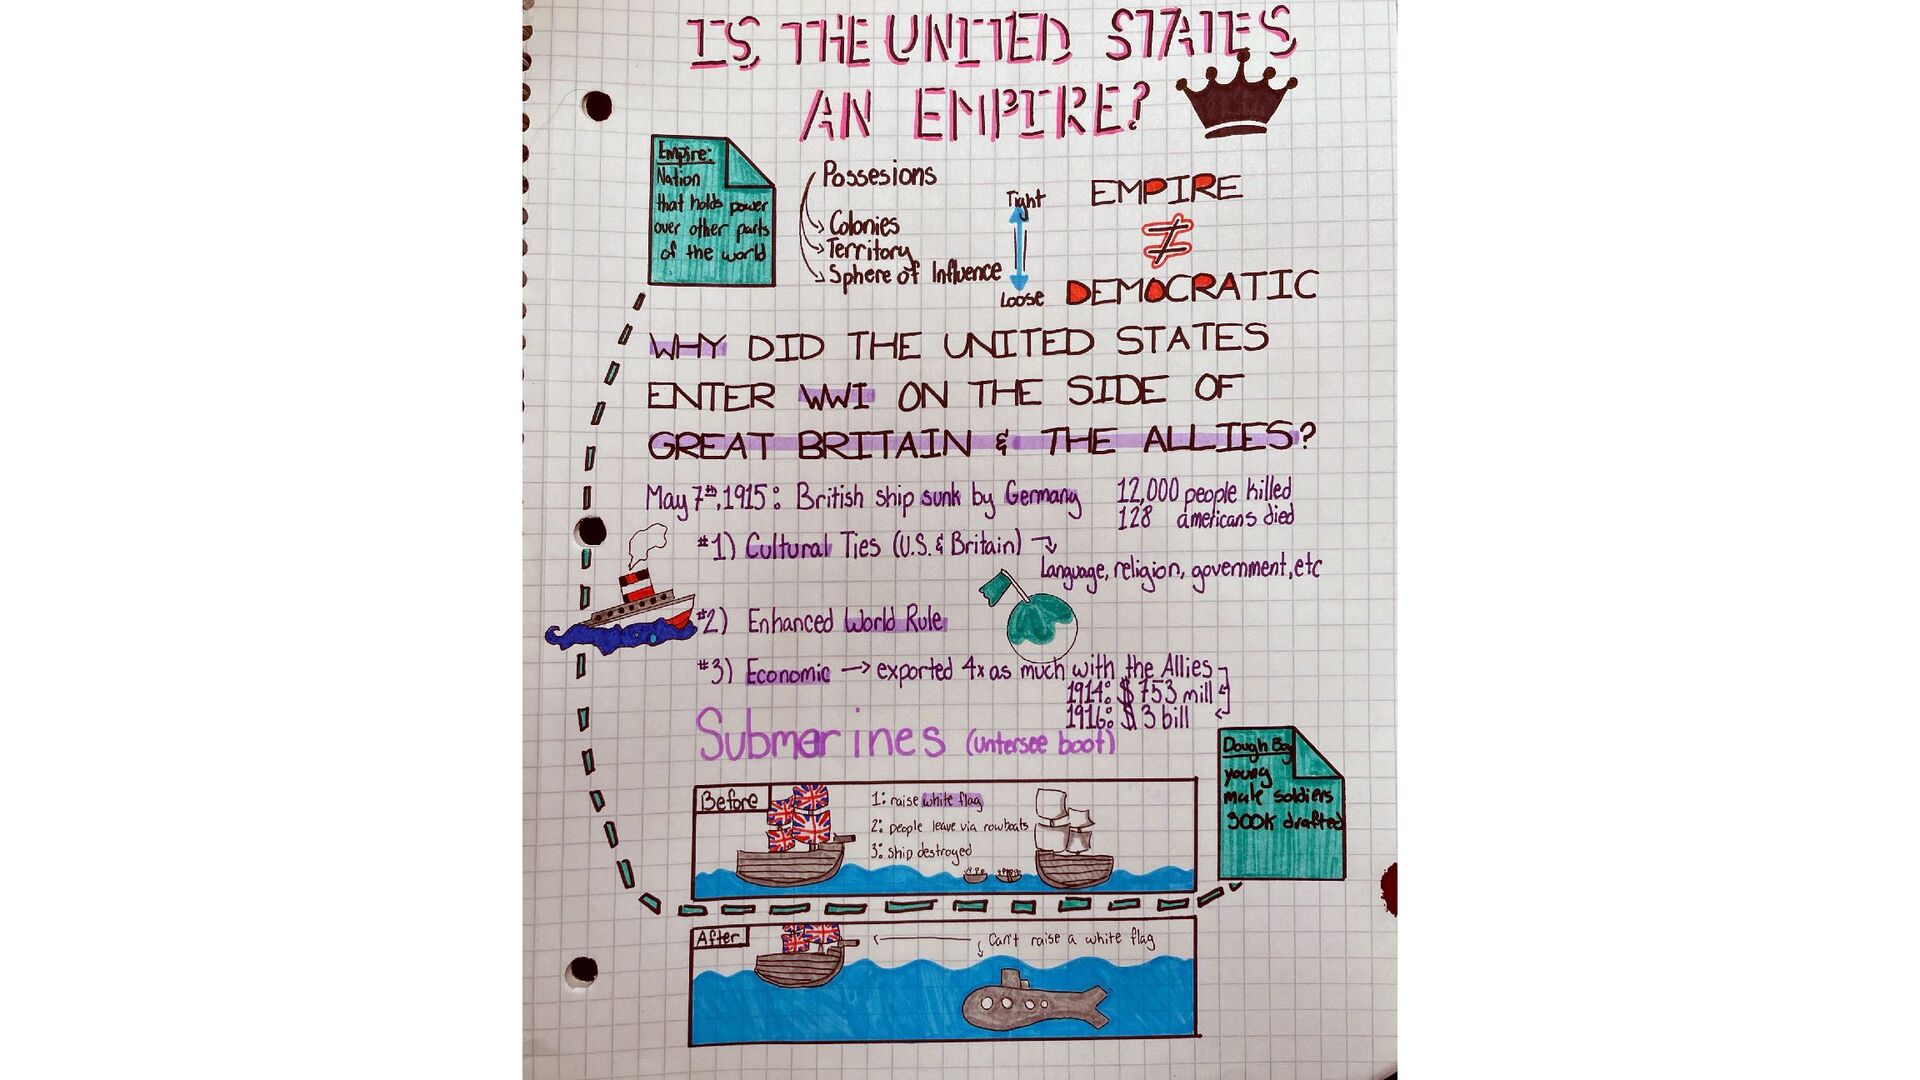 IS THE UNITED STATES
AN EMPIRE?
Empire:
Nation
that holds power
over other parts
of the world
Possesions
Colonies
Territory
Sphere of Influence
Tight
Loose
EMPIRE
≠
DEMOCRATIC
WHY DID THE UNITED STATES
ENTER WWI ON THE SIDE OF
GREAT BRITAIN & THE ALLIES?
May 7th, 1915: British ship sunk by Germany
12,000 people killed
128 americans died
#1) Cultural Ties (U.S. & Britain) →
Language, religion, government, etc
#2) Enhanced World Rule
#3) Economic → exported 4x as much with the Allies
1914: $753 mill
1916: $3 bill
Submarines (untersee boot)
Dough Boy
young
male soldiers
300K drafted
Before
1: raise white flag
2: people leave via rowboats
3: ship destroyed
After
Can't raise a white flag